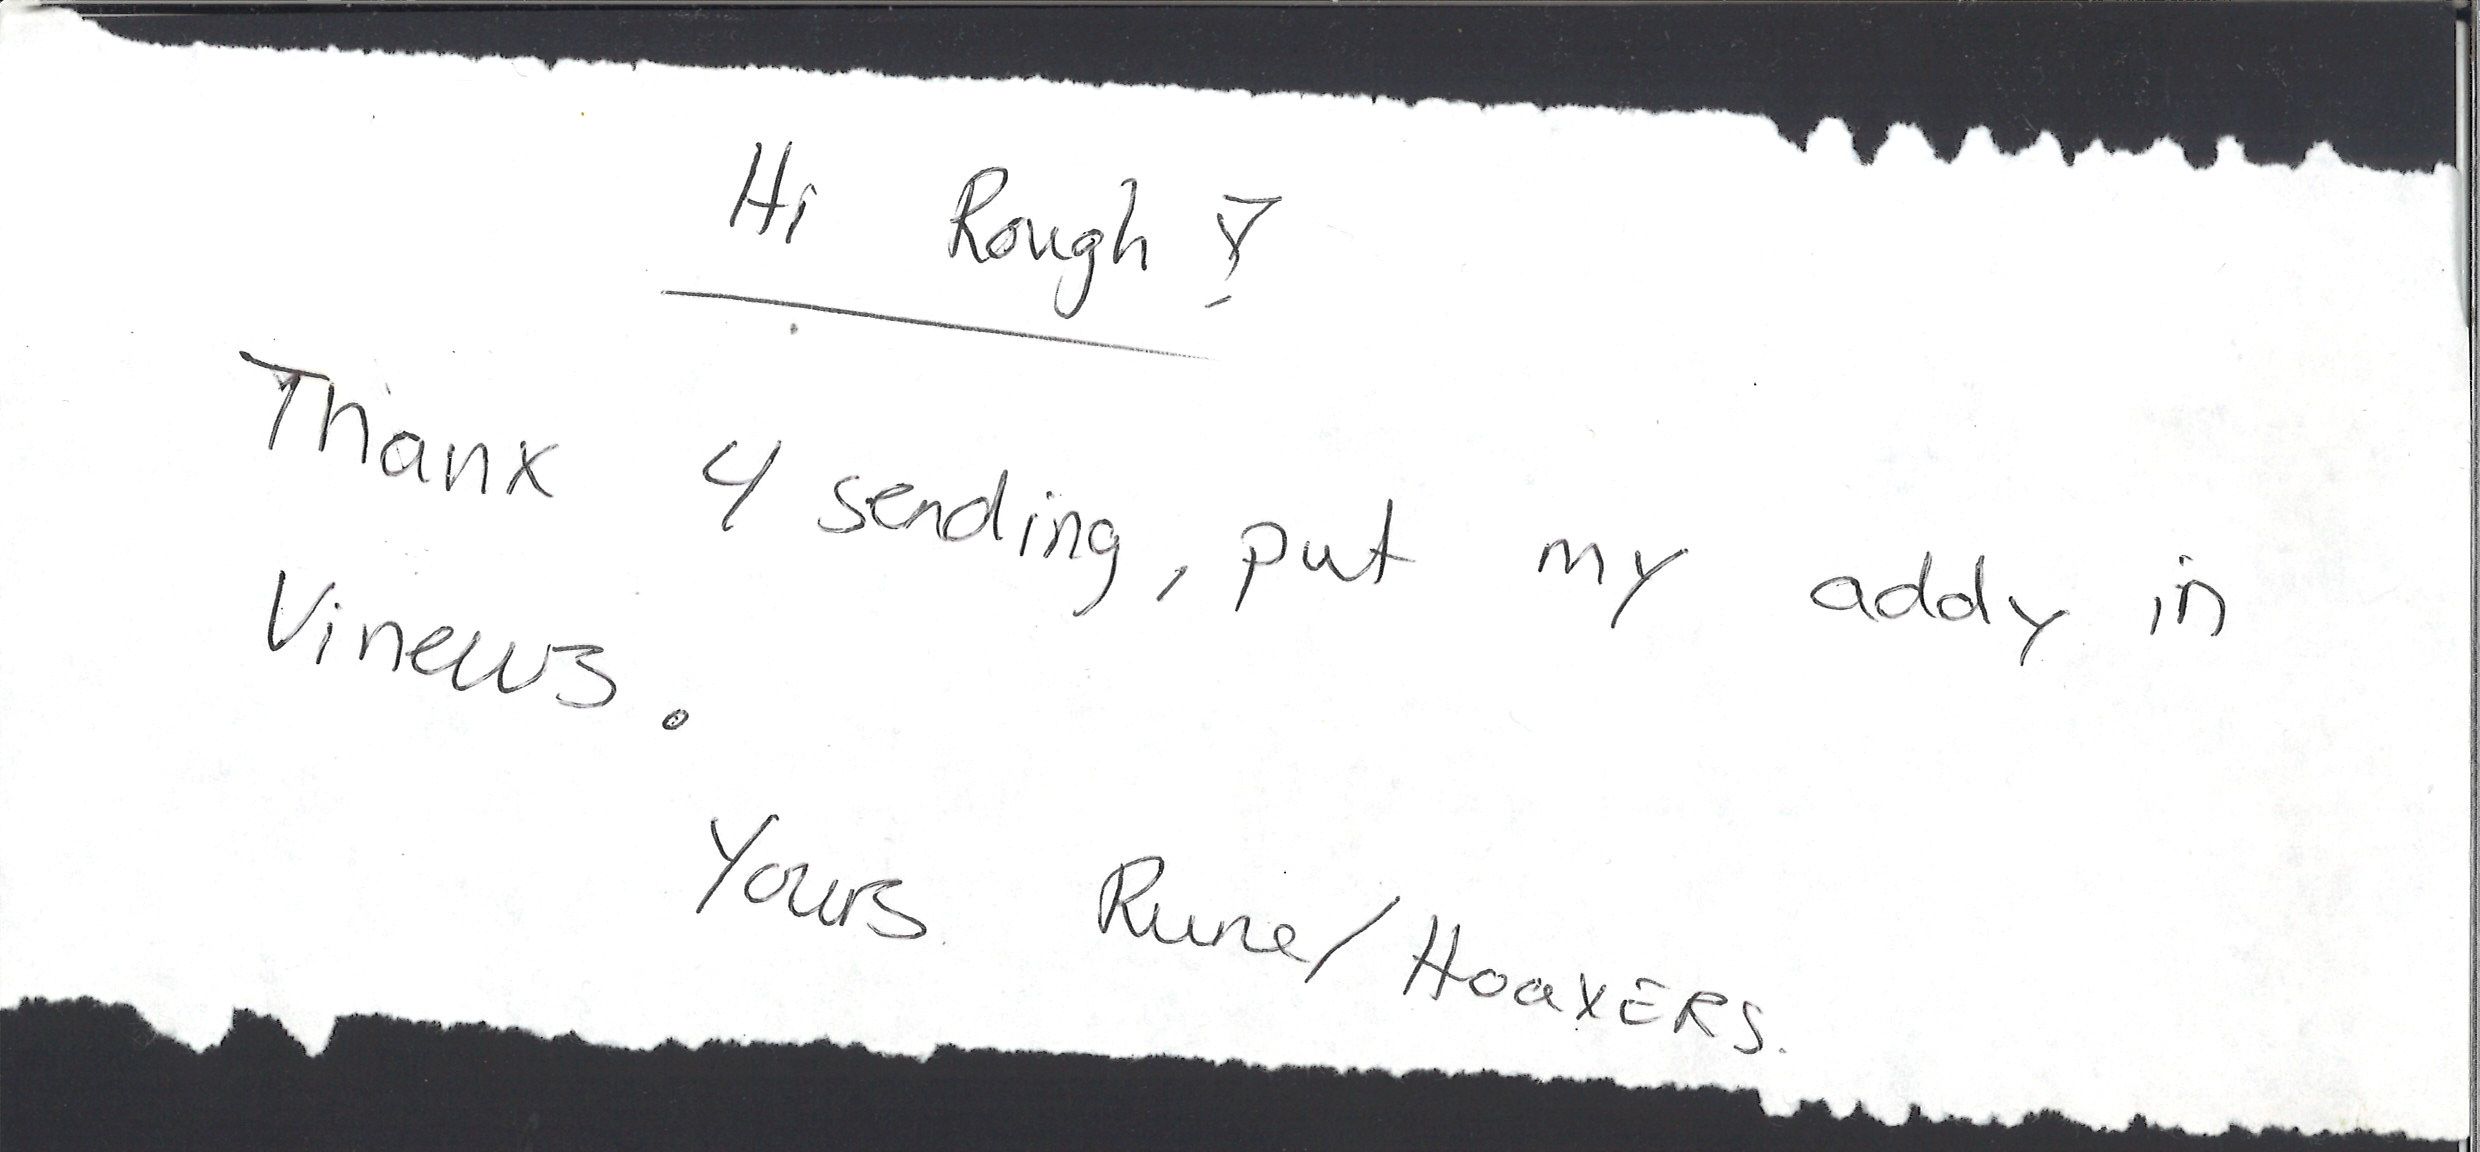 Hi Rough!
Thanx 4 sending, put my addy in
Vinews.
Yours Rune/HoaxERS.